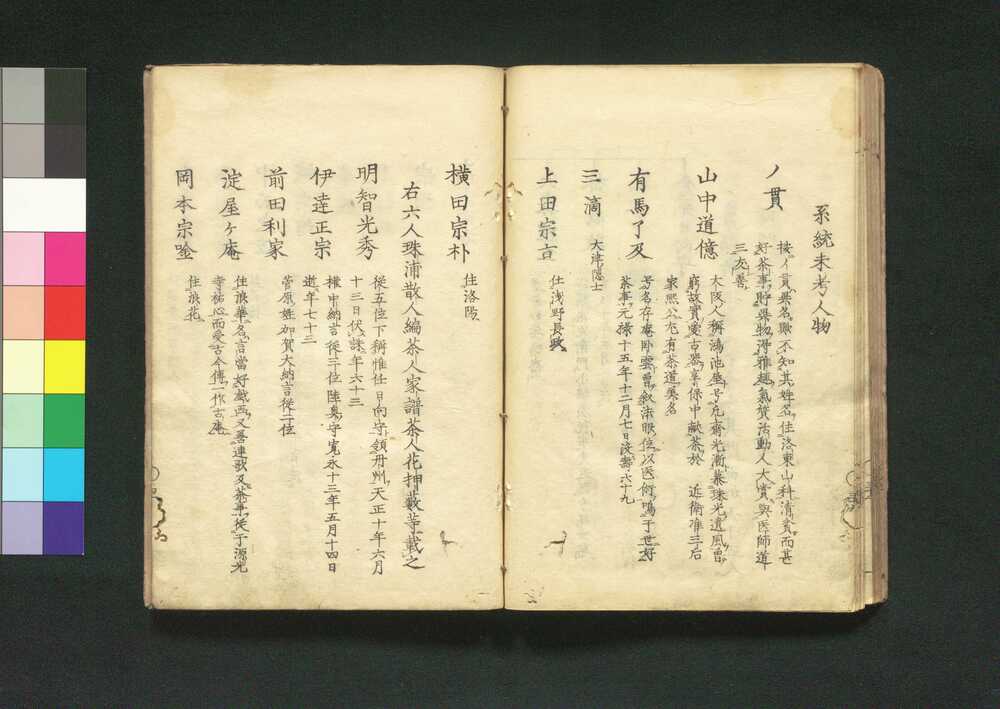 系統未考人物
ノ貫
按ノ貫異名歟不知其姓名住洛東山科清貧而甚
好茶事貯異物得雅趣氣發活動人大賞與医師道
三友善
山中道億
大阪人稱鴻池屋号充齋光漸慕珠光遺風曽
窮故實愛古器享保中献茶於 近衛准三后
家熈公尤有茶道異名
有馬了及
号名存庵卧雲曽叙法眼位以医術鳴于世好
茶事元禄十五年十二月七日没壽六十九
三滴
大津隠士
上田宗古
仕浅野長政
横田宗朴
住洛陽
右六人珠浦散人編茶人家譜茶人花押藪等載之
明智光秀
從五位下稱惟任日向守領丹州天正十年六月
十三日伏誅年六十三
伊達正宗
權中納言從三位陸奥守寛永十三年五月十四日
逝年七十三
前田利家
菅原姓加賀大納言從二位
淀屋ヶ庵
住浪華名言當好戯画又善連歌又茶事從于源光
寺祐心而受古今傳一作古庵
岡本宗
住浪花